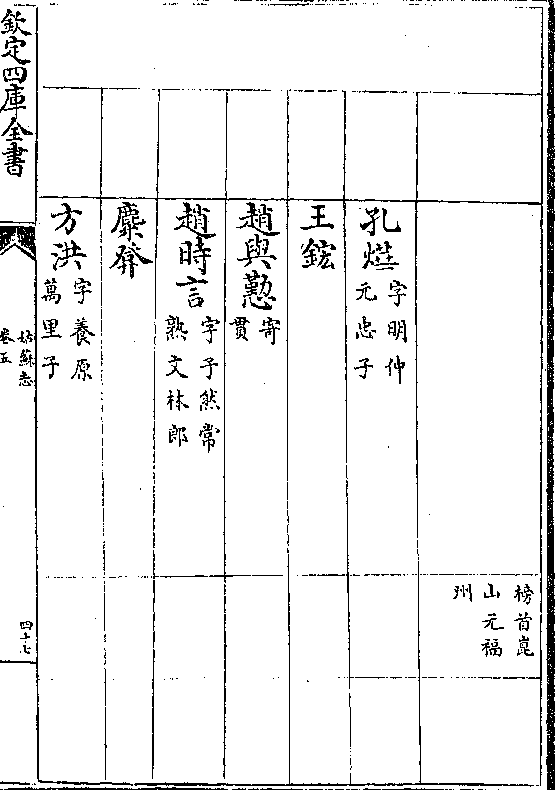 榜首崑
山元福
州
孔熯字明仲
元忠子
王鋐
趙與懃寄
貫
趙時言字子然常
熟文林郎
麋弇
方洪字養原
萬里子
欽定四庫全書
姑蘇志
卷五
四十七